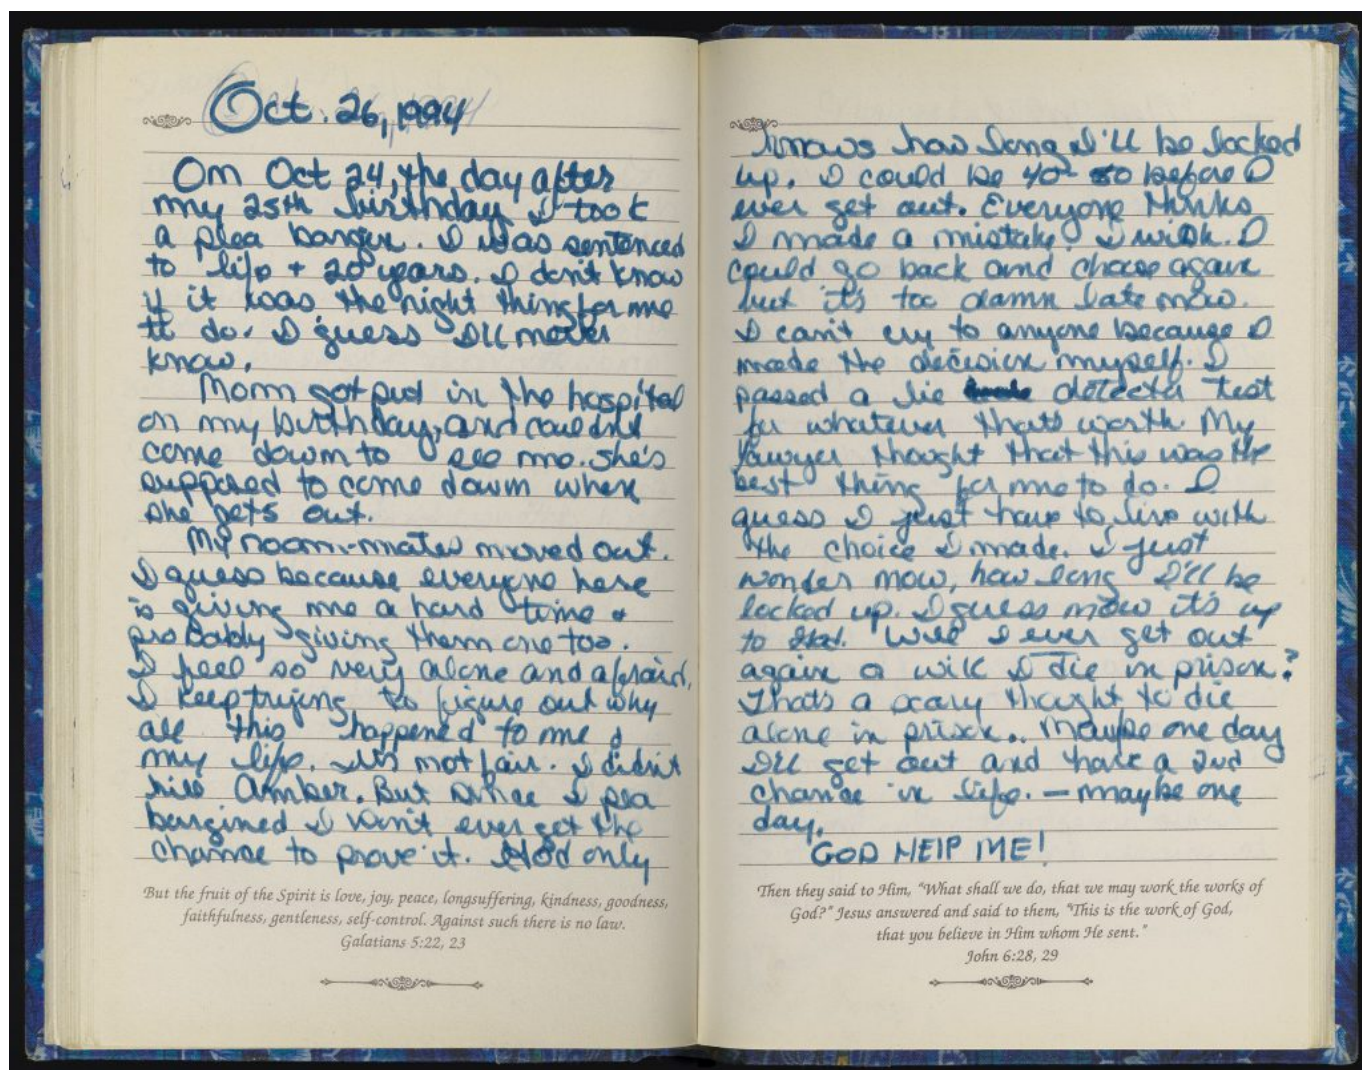 Oct. 26, 1994
On Oct 24, the day after
my 25th birthday I took
a plea bargin. I was sentenced
to life + 20 years. I don't know
if it was the right thing for me
to do. I guess I'll never
know.
Mom got put in the hospital
on my birthday, and couldn't
come down to see me. She's
supposed to come down when
she gets out.
My room-mates moved out.
I guess because everyone here
is giving me a hard time &
probably giving them one too.
I feel so very alone and afraid.
I keep trying to figure out why
all this happened to me &
my life. It's not fair. I didn't
kill Amber. But since I plea
bargined I won't ever get the
chance to prove it. God only
But the fruit of the Spirit is love, joy, peace, longsuffering, kindness, goodness,
faithfulness, gentleness, self-control. Against such there is no law.
Galatians 5:22, 23
knows how long I'll be locked
up. I could be 40-50 before I
ever get out. Everyone thinks
I made a mistake. I wish I
could go back and choose again
but it's too damn late now.
I can't cry to anyone because I
made the decision myself. I
passed a lie detector test
for whatever that's worth. My
lawyer thought that this was the
best thing for me to do. I
guess I just have to live with
the choice I made. I just
wonder now, how long I'll be
locked up. I guess now it's up
to God. Will I ever get out
again or will I die in prison?
Thats a scary thought to die
alone in prison.. Maybe one day
I'll get out and have a 2nd
chance in life. — maybe one
day.
GOD HELP ME!
Then they said to Him, "What shall we do, that we may work the works of
God?" Jesus answered and said to them, "This is the work of God,
that you believe in Him whom He sent."
John 6:28, 29